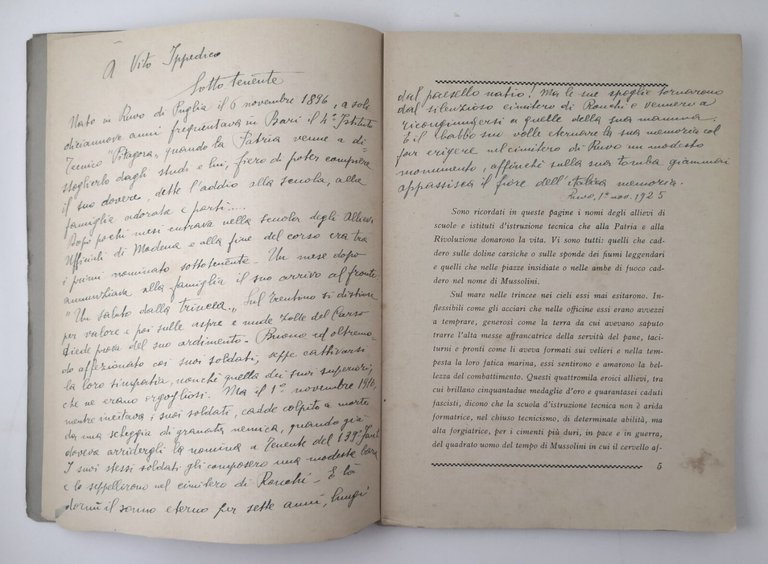 A Vito Ippedico
Sottotenente
Nato in Ruvo di Puglia il 6 novembre 1896, a sole
diciannove anni frequentava in Bari il 4º Istituto
Tecnico "Pitagora", quando la Patria venne a di-
stoglierlo dagli studi e lui, fiero di poter compiere
il suo dovere, dette l'addio alla scuola, alla
famiglia adorata e partì....
Dopo pochi mesi entrava nella scuola degli Allievi
Ufficiali di Modena e alla fine del corso era tra
i primi nominato sottotenente. Un mese dopo
annunziava alla famiglia il suo arrivo al fronte
"Un saluto dalla trincea". Sul trentino si distinse
per valore e poi sulle aspre e nude zolle del Carso
diede prova del suo ardimento. Buono ed oltremo-
do affezionato coi suoi soldati, seppe cattivarsi
la loro simpatia, nonchè quella dei suoi superiori,
che ne erano orgogliosi. Ma il 1º novembre 1916,
mentre incitava i suoi soldati, cadde colpito a morte
da una scheggia di granata nemica, quando già
doveva arridergli la nomina a Tenente del 139º Fant.
I suoi stessi soldati gli composero una modesta bara
e lo seppellirono nel cimitero di Ronchi. E là
dormì il sonno eterno per sette anni, lungi
dal paesello natio! Ma le sue spoglie tornarono
dal silenzioso cimitero di Ronchi e vennero a
ricongiungersi a quelle della sua mamma.
E il babbo suo volle eternare la sua memoria col
far erigere nel cimitero di Ruvo un modesto
monumento, affinchè sulla sua tomba giammai
appassisca il fiore dell'italica memoria.
Ruvo, 1º nov. 1925
Sono ricordati in queste pagine i nomi degli allievi di
scuole e istituti d'istruzione tecnica che alla Patria e alla
Rivoluzione donarono la vita. Vi sono tutti: quelli che cad-
dero sulle doline carsiche o sulle sponde dei fiumi leggendari
e quelli che nelle piazze insidiate o nelle ambe di fuoco cad-
dero nel nome di Mussolini.
Sul mare nelle trincee nei cieli essi mai esitarono. In-
flessibili come gli acciari che nelle officine essi erano avvezzi
a temprare, generosi come la terra da cui avevano saputo
trarre l'alta messe affrancatrice della servitù del pane, taci-
turni e pronti come li aveva formati sui velieri e nella tem-
pesta la loro fatica marina, essi sentirono e amarono la bel-
lezza del combattimento. Questi quattromila eroici allievi, tra
cui brillano cinquantadue medaglie d'oro e quarantasei caduti
fascisti, dicono che la scuola d'istruzione tecnica non è arida
formatrice, nel chiuso tecnicismo, di determinate abilità, ma
alta forgiatrice, per i cimenti più duri, in pace e in guerra,
del quadrato uomo del tempo di Mussolini in cui il cervello af-
5